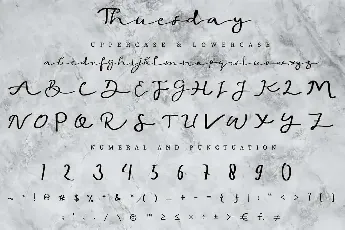 Thuesday
UPPERCASE & LOWERCASE
a b c d e f g h i j k l m n o p q r s t u v w x y z
A B C D E F G H I J K L M
N O P Q R S T U V W X Y Z
NUMERAL AND PUNCTUATION
1 2 3 4 5 6 7 8 9 0